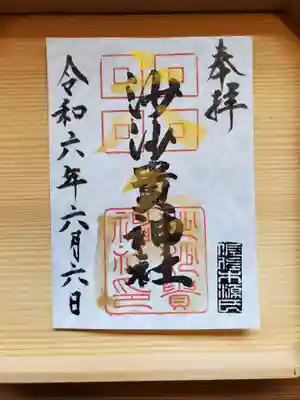 奉拝
沙沙貴神社
沙沙貴
神社印
令和六年六月六日